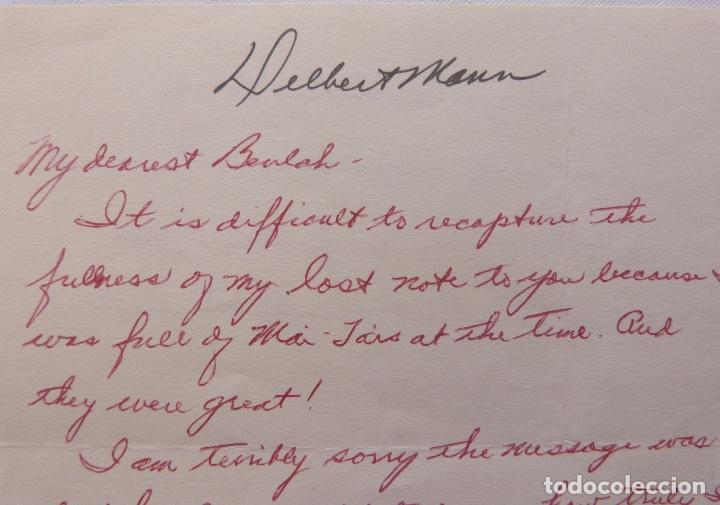 Delbert Mann
My dearest Beulah -
It is difficult to recapture the
fullness of my lost note to you because
was full of Mai-Tais at the time. And
they were great!
I am terribly sorry the message was
how truly
todocoleccion.net